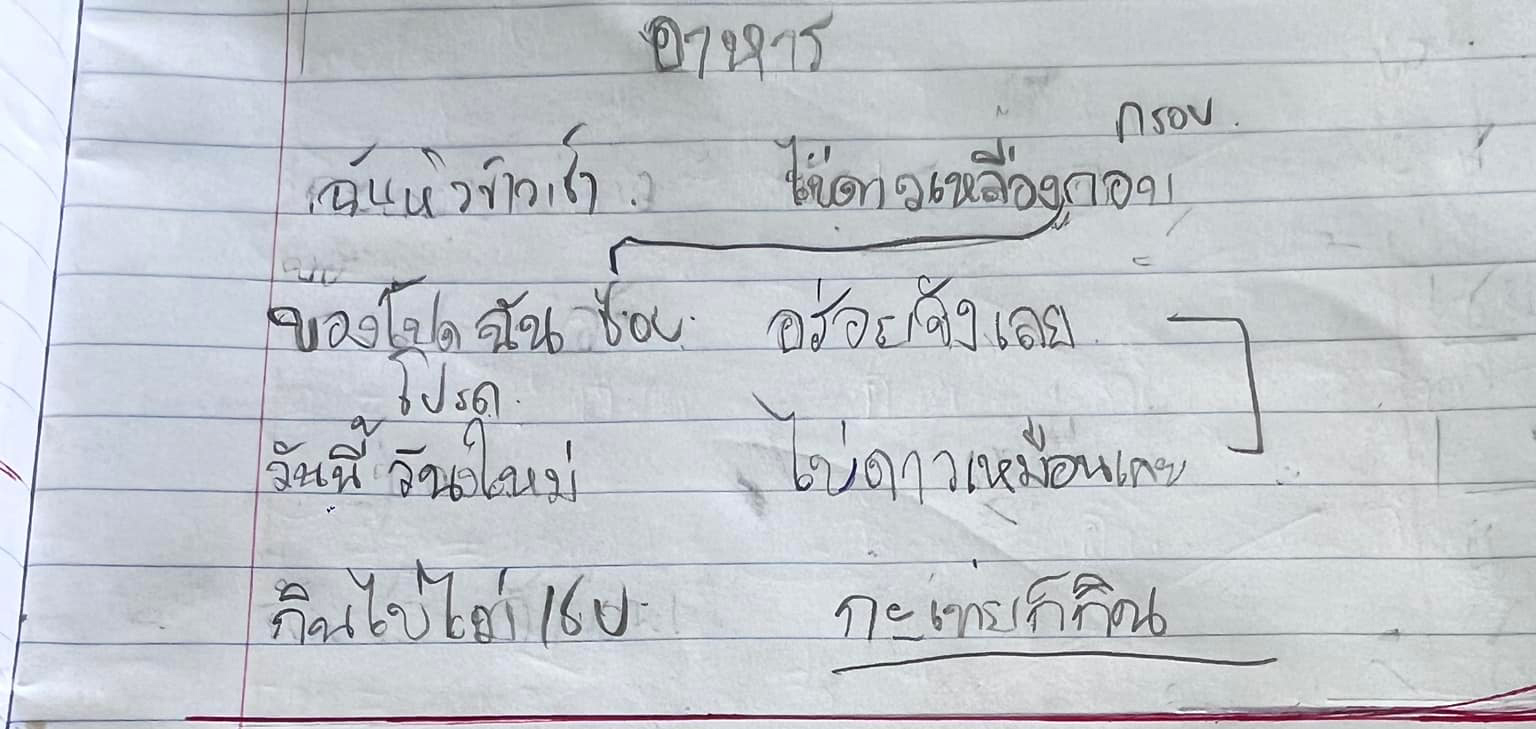 อาหาร
กรอบ
ฉันหิวข้าวเช้า ไข่ดาวเหลืองกอบ
ของโปด ฉัน ช้อบ อร่อยจังเลย
โปรด
วันนี้ วันใหม่ ไข่ดาวเหมือนเคย
กินไข่ไก่ กะเทยก็กิน